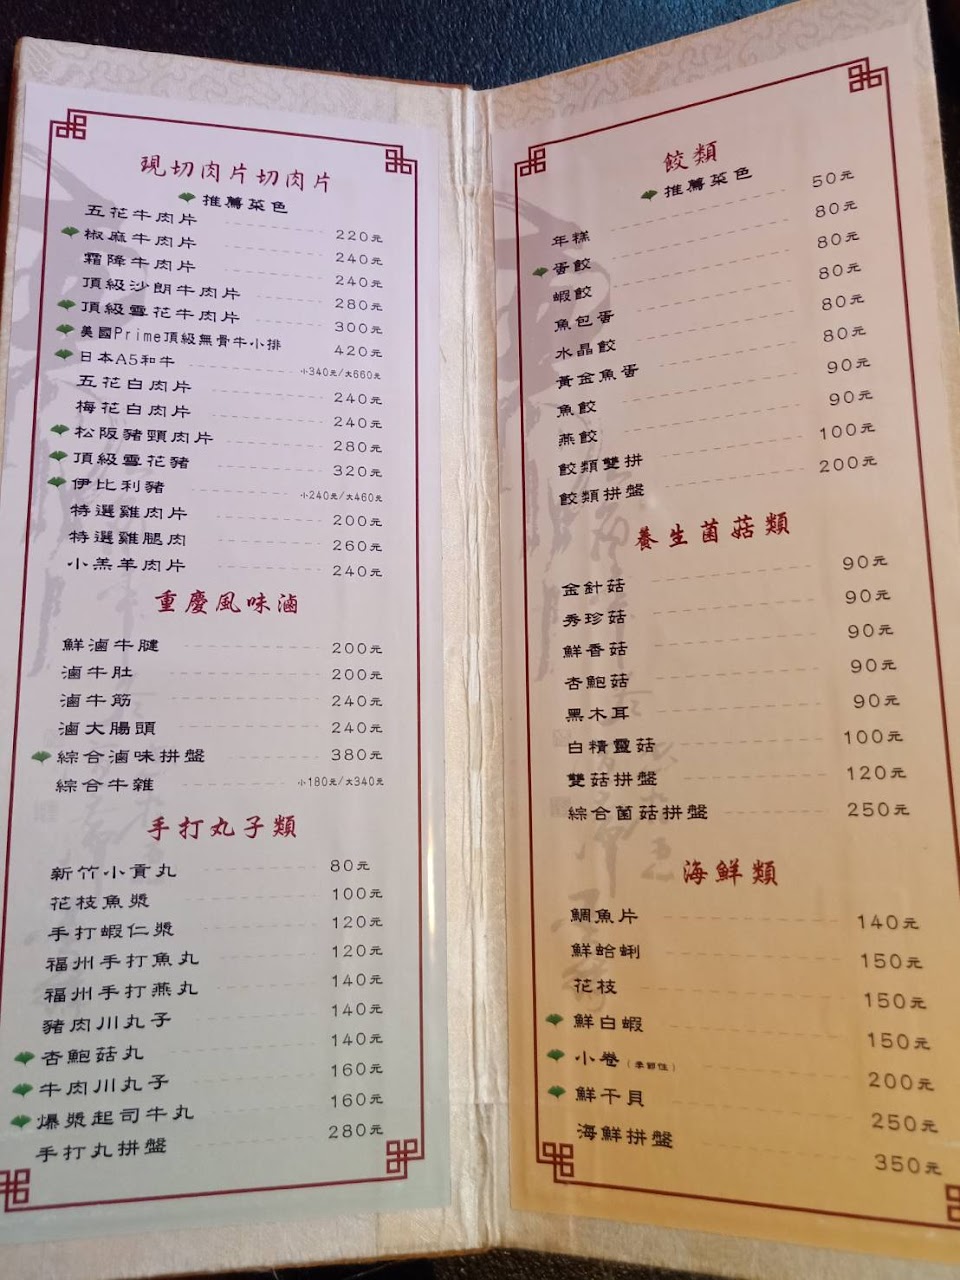 現切肉片切肉片
推薦菜色
五花牛肉片 220元
椒麻牛肉片 240元
霜降牛肉片 240元
頂級沙朗牛肉片 280元
頂級雪花牛肉片 300元
美國Prime頂級無骨牛小排 420元
日本A5和牛 小340元/大660元
五花白肉片 240元
梅花白肉片 240元
松阪豬頸肉片 280元
頂級雪花豬 320元
伊比利豬 小240元/大460元
特選雞肉片 200元
特選雞腿肉 260元
小羔羊肉片 240元
重慶風味滷
鮮滷牛腱 200元
滷牛肚 200元
滷牛筋 240元
滷大腸頭 240元
綜合滷味拼盤 380元
綜合牛雜 小180元/大340元
手打丸子類
新竹小貢丸 80元
花枝魚漿 100元
手打蝦仁漿 120元
福州手打魚丸 120元
福州手打燕丸 140元
豬肉川丸子 140元
杏鮑菇丸 140元
牛肉川丸子 160元
爆漿起司牛丸 160元
手打丸拼盤 280元
餃類
推薦菜色
年糕 50元
蛋餃 80元
蝦餃 80元
魚包蛋 80元
水晶餃 80元
黃金魚蛋 80元
魚餃 90元
燕餃 90元
餃類雙拼 100元
餃類拼盤 200元
養生菌菇類
金針菇 90元
秀珍菇 90元
鮮香菇 90元
杏鮑菇 90元
黑木耳 90元
白精靈菇 100元
雙菇拼盤 120元
綜合菌菇拼盤 250元
海鮮類
鯛魚片 140元
鮮蛤蜊 150元
花枝 150元
鮮白蝦 150元
小卷(季節性) 200元
鮮干貝 250元
海鮮拼盤 350元